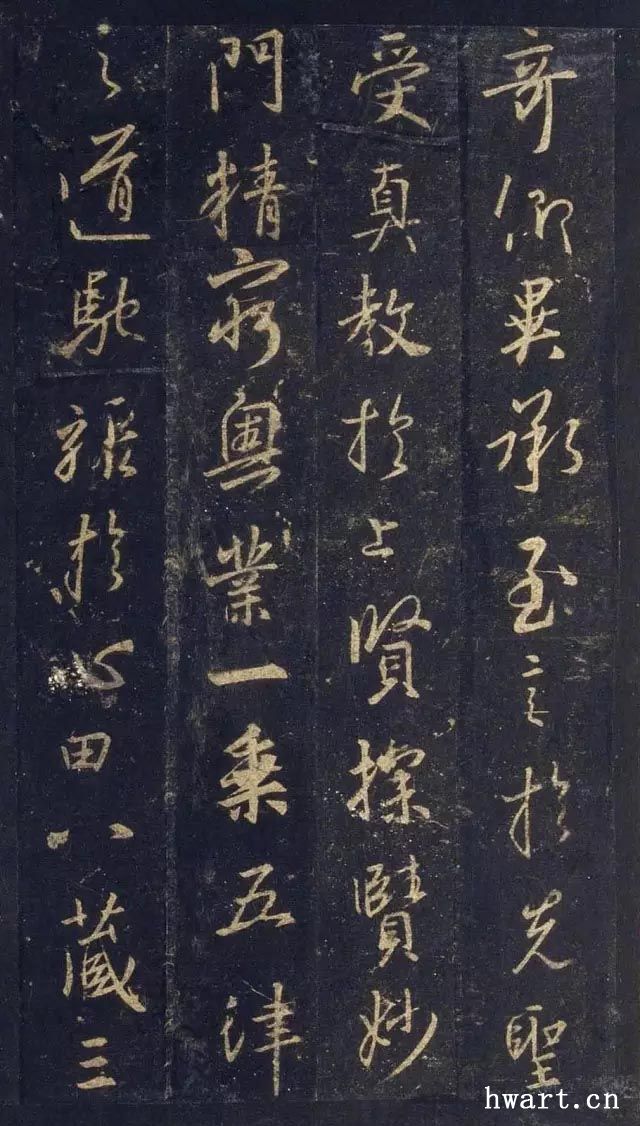 奇仰異承至言於先聖
受真教於上賢探賾妙
門精窮奧業一乘五律
之道馳驟於心田八藏三
hwart.cn